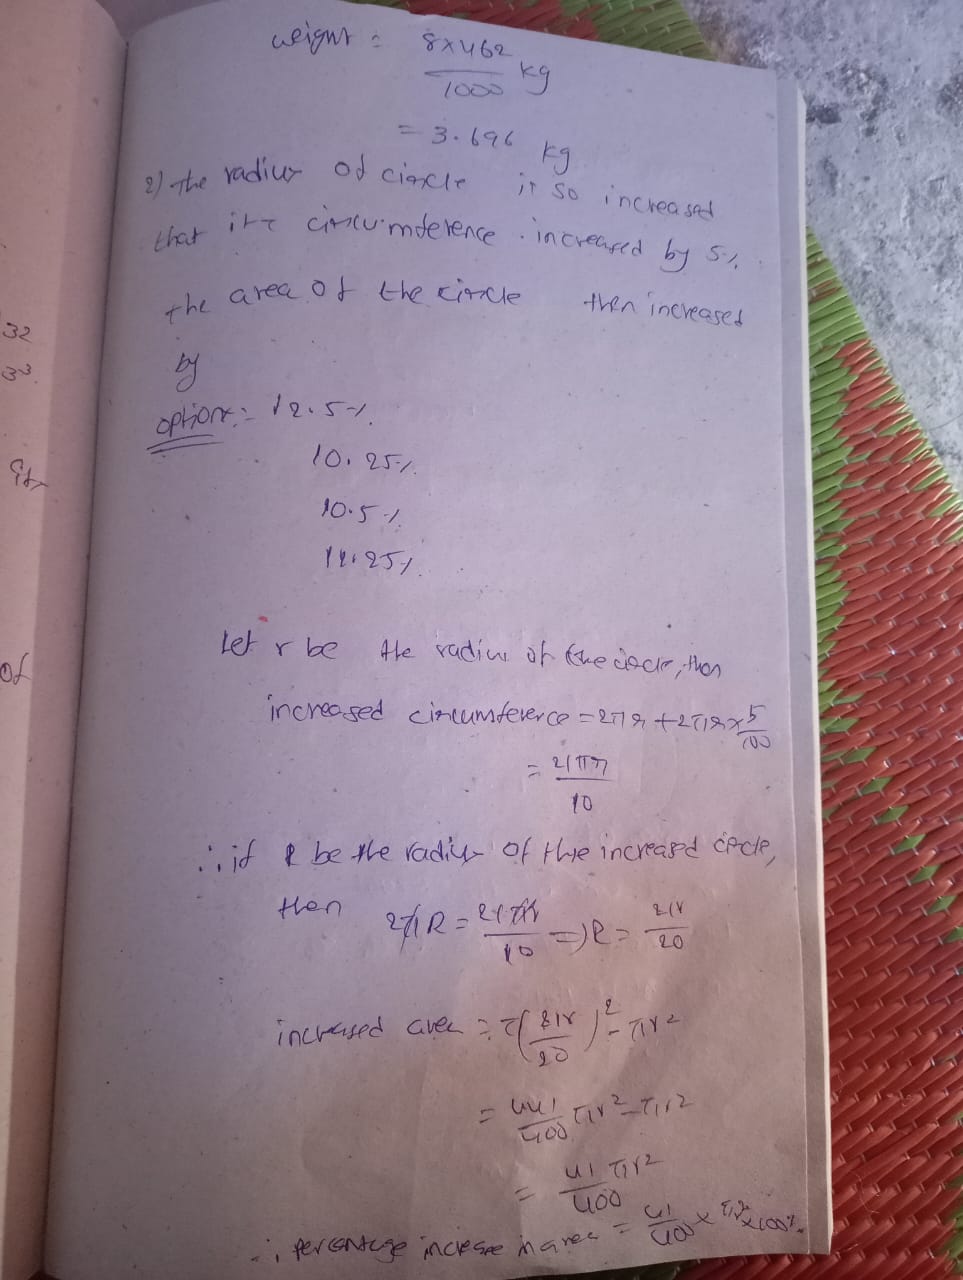 weight = 8x462/1000 kg
= 3.696 kg
2) the radius of circle is so increased
that its circumference increased by 5%.
the area of the circle then increased
by
option:- 12.5%.
10.25%.
10.5%.
11.25%.
32
33
its
of
Let r be the radius of the circle, then
increased circumference = 2πr + 2πr x 5/100
= 21πr/10
∴ if R be the radius of the increased circle,
then 2πR = 21πr/10 => R = 21r/20
increased area = π(21r/20)² - πr²
= 441/400 πr² - πr²
= 41πr²/400
∴ percentage increase in area = 41/400 x x100%.